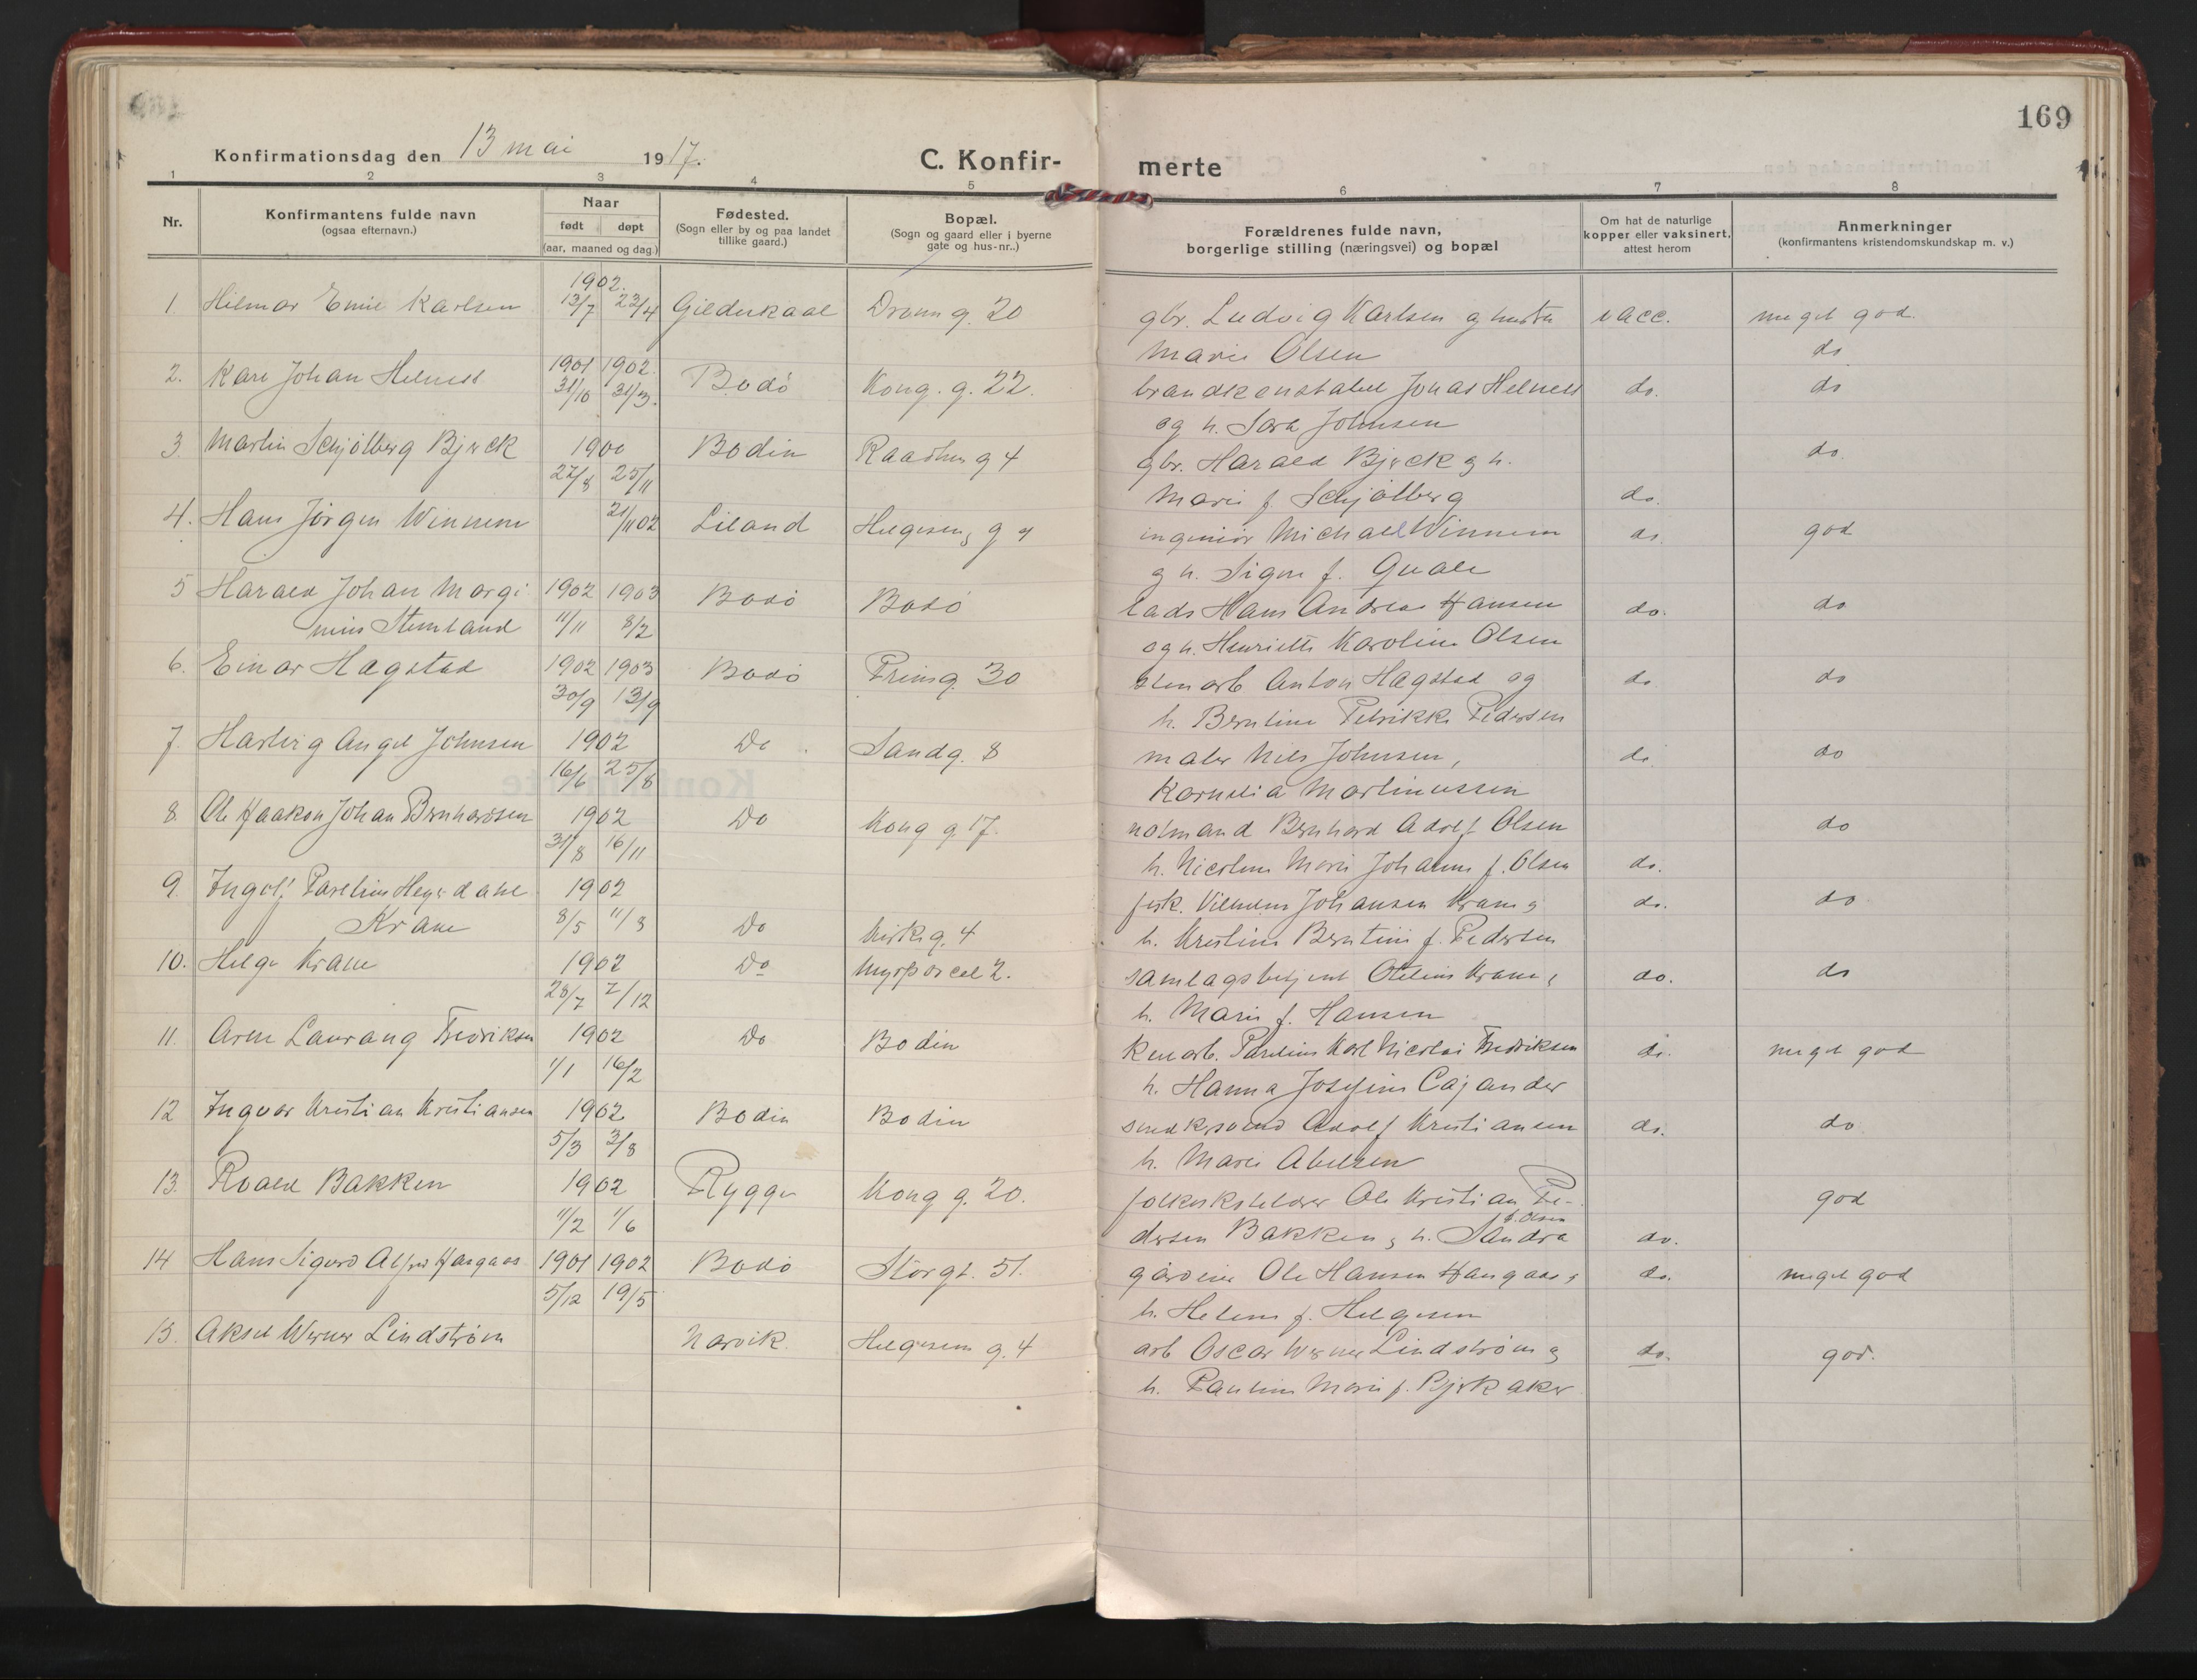 169
Konfirmationsdag den 13 mai 1917.
C. Konfir-merte
1 2 3 4 5 6 7 8
Nr.
Konfirmantens fulde navn
(ogsaa efternavn.)
Naar
født døpt
(aar, maaned og dag.)
Fødested.
(Sogn eller by og paa landet
tillike gaard.)
Bopæl.
(Sogn og gaard eller i byerne
gate og hus-nr..)
Forældrenes fulde navn,
borgerlige stilling (næringsvei) og bopæl
Om hat de naturlige
kopper eller vaksinert,
attest herom
Anmerkninger
(konfirmantens kristendomskundskap m. v.)
1902.
1. Hilmar Emil Karlsen 13/7 23/4 Gildeskaal Dronn g. 20 gbr. Ludvig Karlsen og hustru vacc. meget god.
Marie Olsen do
1901 1902
2. Kare Johan Helness 31/10 31/3. Bodö Kong. g. 22. brandkonstabel Jonas Helness do. do
og h. Sara Johnsen
3 Martin Schjölberg Bjørck 1900 Bodin Raadhus g 4 gbr. Harald Bjørck og h. do
27/8 25/11 Marie f. Schjölberg do.
4. Hans Jörgen Winnem 21/11 02 Liland Helgesens g 9 ingeniör Michael Winnem do. god
og h. Signe f. Quale
5 Harald Johan Margi 1902 1903 Bodö Bodö lads Hans Andreas Hansen do. do
nius Stemland 11/11 8/2 og h. Henriette Karoline Olsen
6. Einar Hagstad 1902 1903 Bodö Prinsg. 30 stenarb Anton Hagstad og do do
30/9 13/9 h. Berntine Petrikke Pedersen
7. Hartvig Angel Johnsen 1902 Do Sandg. 8 maler Nils Johnsen, do do
16/6 25/8 Kornelia Martinussen
8. Ole Haakon Johan Bernhardsen 1902 Do Kong g. 17. notmand Bernhard Adolf Olsen do
31/8 16/11 h. Nicoline Marie Johanne f. Olsen do.
9. Ingolf Parelius Heyerdahl 1902
Krane 8/5 11/8 Do Kirkeg. 4 fisk. Vilhelm Johansen Krane og do. do
h. Kristine Berntine f. Pedersen
10. Helge Krane 1902 Do Myrparcel 2. samlagsbetjent Otelius Krane og do. do
28/7 7/12 h. Marie f. Hansen
11. Arne Laurang Fredriksen 1902 Do Bodin Parelius Karl Nicolai Fredriksen do. meget god
1/1 16/2 h. Hanna Josefine Cajander
12 Ingvar Kristian Kristiansen 1902 Bodin Bodin Adolf Kristiansen do. do
5/3 3/8 h. Marie Abelsen
13. Roald Bakken 1902 Rygge Kong g. 20. Ole Kristian Pe- god
11/2 1/6 dersen Bakken og h. Sandra f. Olsen do.
14 Hans Sigurd Alfred Haagaas 1901 1902 Bodö Storgt. 51. gardeier Ole Hansen Haugaas og do. meget god
5/12 19/5 h. Helene f. Helgesen
15. Aksel Werner Lindström Narvik. Helgesens g. 4 arb Oscar Werner Lindström og do. god.
h. Pauline Marie f. Bjerkaker